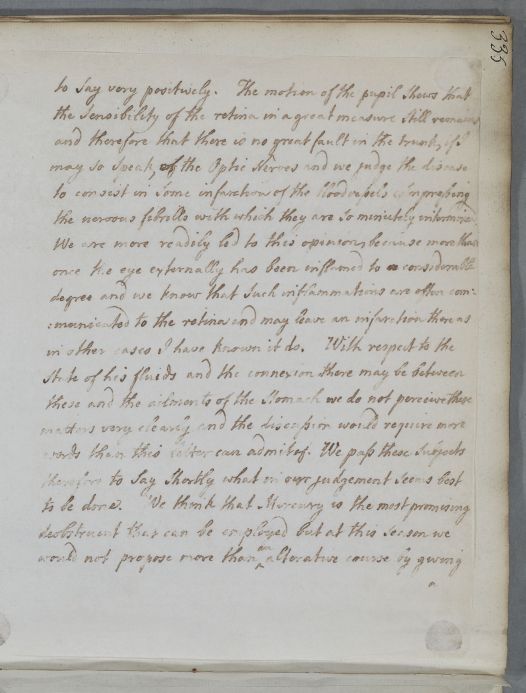 335
to Say very positively. The motion of the pupil Shews that
the Sensibility of the retina in a great measure Still remains
and therefore that there is no great fault in the trunk, if I
may so Speak, of the Optic Nerves and we judge the disease
to consist in Some infarction of the bloodvessels compressing
the nervous fibrills with which they are So minutely intermixed
We are more readily led to this opinion, because more than
once the eye externally has been inflamed to a considerable
degree and we know that Such inflammations are often com:
:municated to the retina and may leave an infarction there as
in other cases I have known it do. With respect to the
State of his fluids and the connexion there may be between
these and the ailments of the Stomach we do not perceive these
matters very clearly and the discussion would require more
words than this letter can admit of. We pass these Subjects
therefore to Say Shortly what in our judgement Seems best
to be done. We think that Mercury is the most promising
deobstruent that can be employed but at this Season we
would not propose more than an alterative course by giving
a